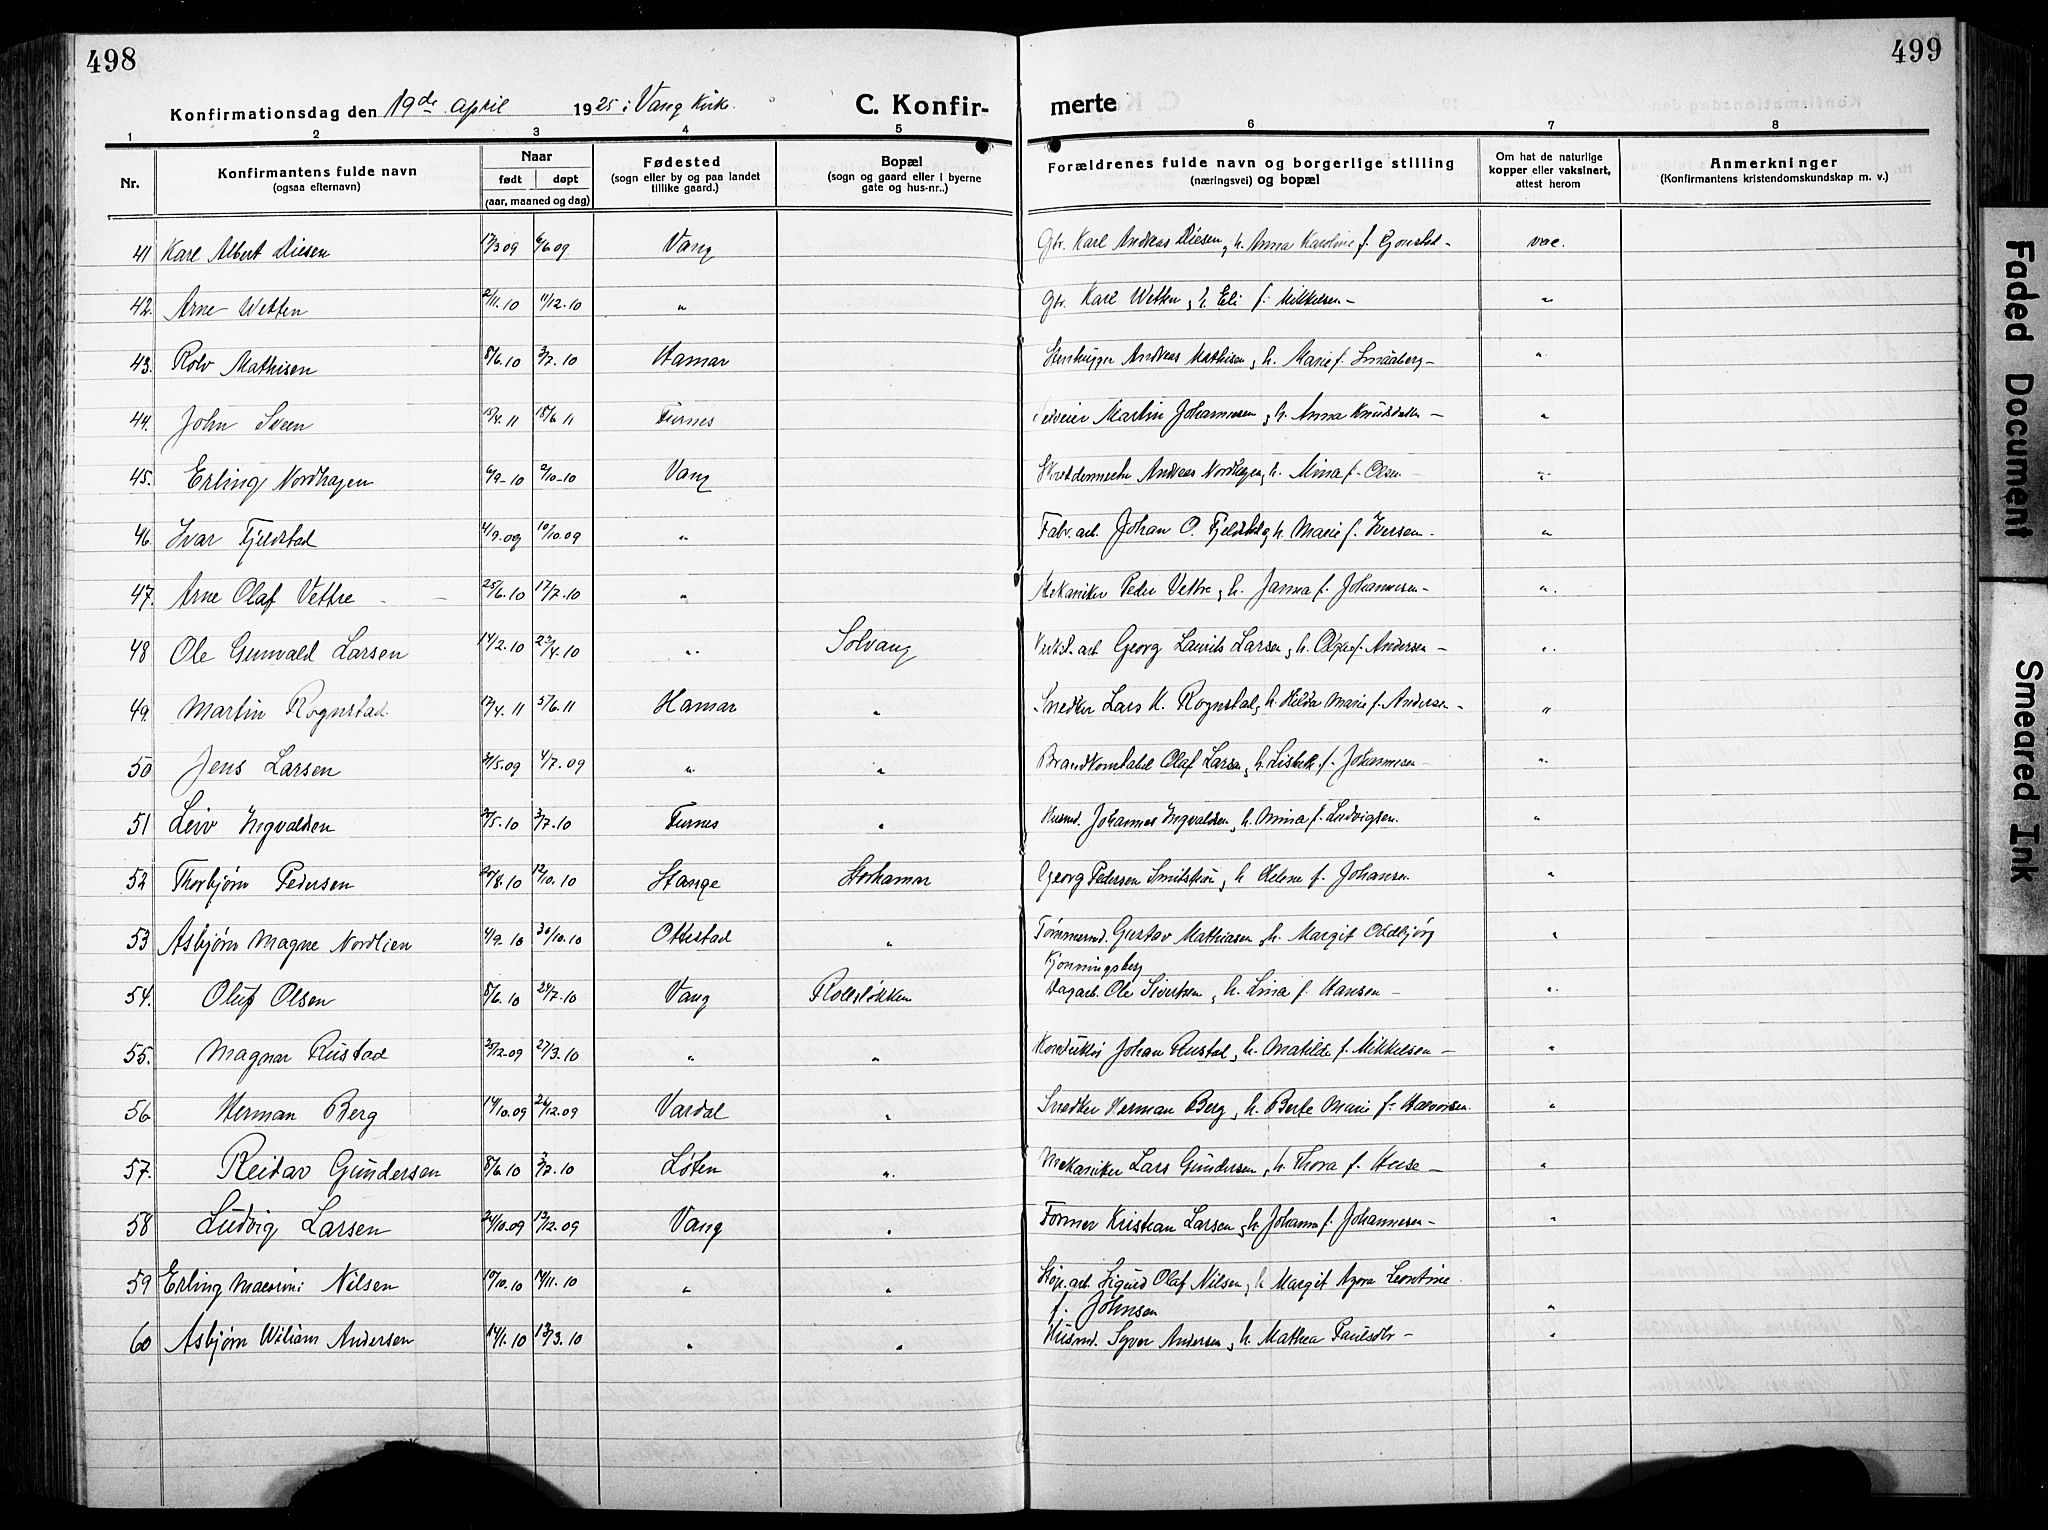 498
499
Konfirmationsdag den 19de april 1925 i Vang Kirke.
C. Konfir-
merte
1 2 3 4 5 6 7 8
Nr.
Konfirmantens fulde navn
(ogsaa efternavn)
Naar
født døpt
(aar, maaned og dag)
Fødested
(sogn eller by og paa landet
tillike gaard.)
Bopæl
(sogn og gaard eller i byerne
gate og hus-nr..)
Forældrenes fulde navn og borgerlige stilling
(næringsvei) og bopæl
Om hat de naturlige
kopper eller vaksinert,
attest herom
Anmerkninger
(Konfirmantens kristendomskundskap m. v.)
41 Karl Albert Diesen 17/3 09 6/6 09 Vang Gbr. Karl Andreas Diesen, h. Anna Karoline f. vac.
42. Arne Wetten 2/11.10 11/12.10 " Gbr. Karl Wetten, h. Eli f. Mikkelsen - "
43. Rolv Mathisen 8/6.10 3/7.10 Hamar Stenhugger Andreas Mathisen, h. Marie f. Smaaberg - "
44. John Sveen 15/4.11 18/6 11 Furnes Martin Johannesen, h. Anna Knudsdatter - "
45. Erling Nordhagen 6/9-10 9/10-10 Vang Andreas Nordhagen, h. Mina f. Olsen "
46. Ivar Fjeldstad 4/9.09 10/10.09 " Fabr. arb. Johan O. Fjeldstad, h. Marie f. Iversen - "
47. Arne Olaf Vettre - - 25/6.10 17/7.10 " Mekaniker Peder Vettre, h. Janna f. Johannesen - "
48 Ole Gunvald Larsen 14/2.10 23/4.10 " Solvang arb. Georg Laurits Larsen, h. Olga f. Andersen - "
49. Martin Rognstad. 17/4.11 5/6.11 Hamar " Snedker Lars K. Rognstad, h. Hilda Marie f. Andersen - "
50 Jens Larsen 31/5.09 4/7.09 " " Brandkonstabel Olaf Larsen, h. Lisbeth f. Johannesen - "
51 Leiv Ingvaldsen 5.10 3/7.10 Furnes " Husmd. Johannes Ingvaldsen, h. Mina f. Ludvigsen. "
52 Thorbjørn Pedersen 8.10 12/10.10 Stange Storhamar Georg Pedersen Smitstuen, h. Helene f. Johansen "
53 Asbjørn Magne Nordlien 4/9.10 30/10.10 Ottestad " Tømmermd. Gustav Mathiasen, h. Margit Oddbjørg "
Kjonningsberg
54. Oluf Olsen 8/6.10 24/7.10 Vang Rollsløkken Dagarb. Ole Sivertsen, h. Lina f. Hansen - "
55. Magnar Rustad 25/12.09 27/3.10 " " Konduktør Johan Rustad, h. Matilde f. Mikkelsen - "
56 Herman Berg 14/10.09 26/12.09 Vardal " Snedker Herman Berg, h. Berte Marie f. Halvorsen. "
57. Reidar Gundersen 8/6.10 3/7.10 Løten " Mekaniker Lars Gundersen, h. Thora f. - "
58 Ludvig Larsen 24/10.09 12/12.09 Vang " Former Kristian Larsen, h. Johanne f. Johannesen - "
59 Erling Nilsen 10/10.10 14/11.10 " " arb. Sigurd Olaf Nilsen, h. Margit Leontine
f. Johnsen "
60 Asbjørn Wiliam Andersen 14/1.10 13/3.10 " " Husmd. Syver Andersen, h. Mathea Paulsdtr - "
Faded Document
Smeared Ink